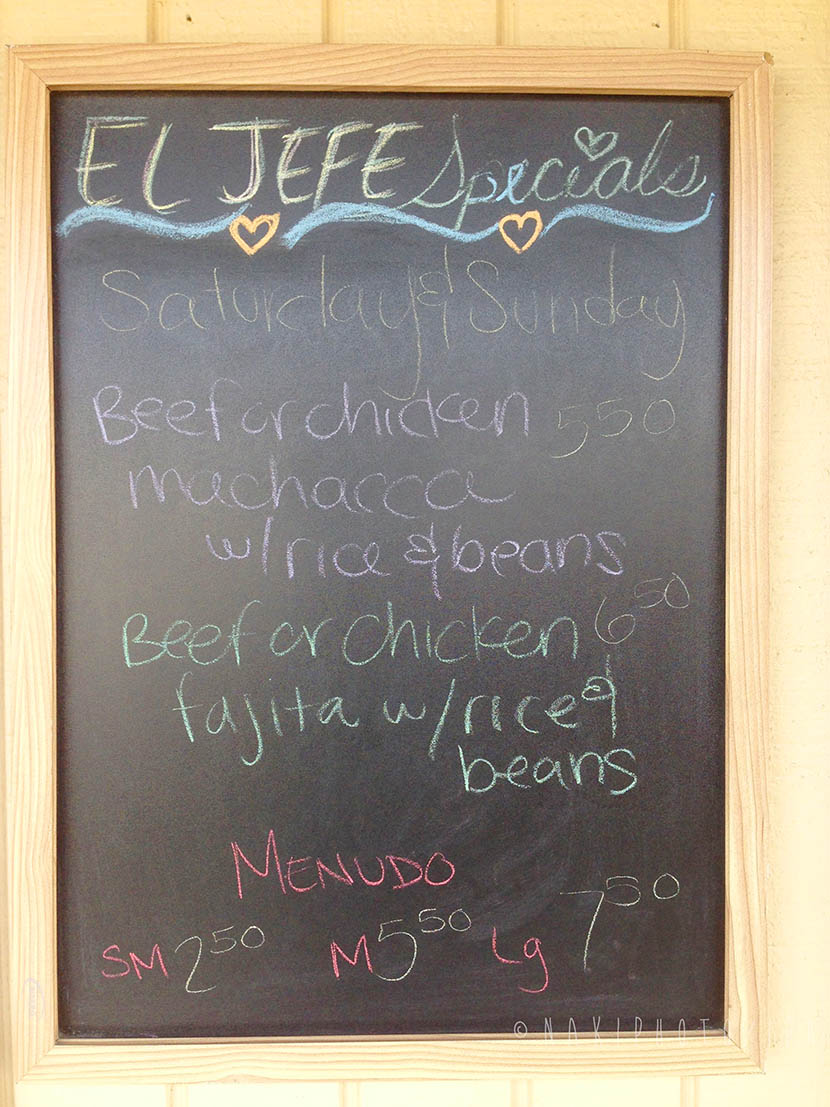 EL JEFE Specials
Saturday & Sunday
Beef or chicken 550
machacca
w/rice & beans
Beef or chicken 650
fajita w/rice &
beans
MENUDO
SM 250 M 550 Lg 750
© NAKIPHOT